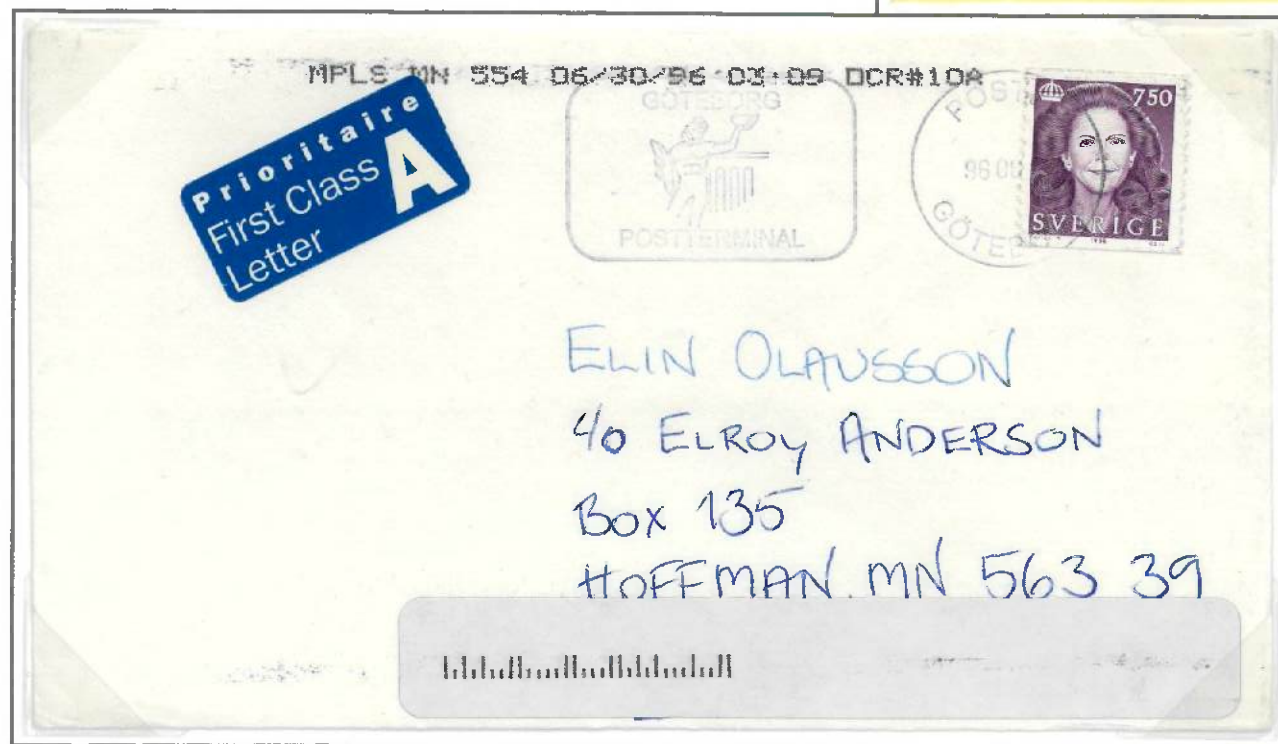 MPLS MN 554 06/30/96 03:09 OCR#10A
Prioritaire
First Class
Letter
A
GÖTEBORG
POSTTERMINAL
POST
96 06
GÖTEB
750
SVERIGE
ELIN OLAUSSON
c/o ELROY ANDERSON
BOX 135
HOFFMAN, MN 563 39